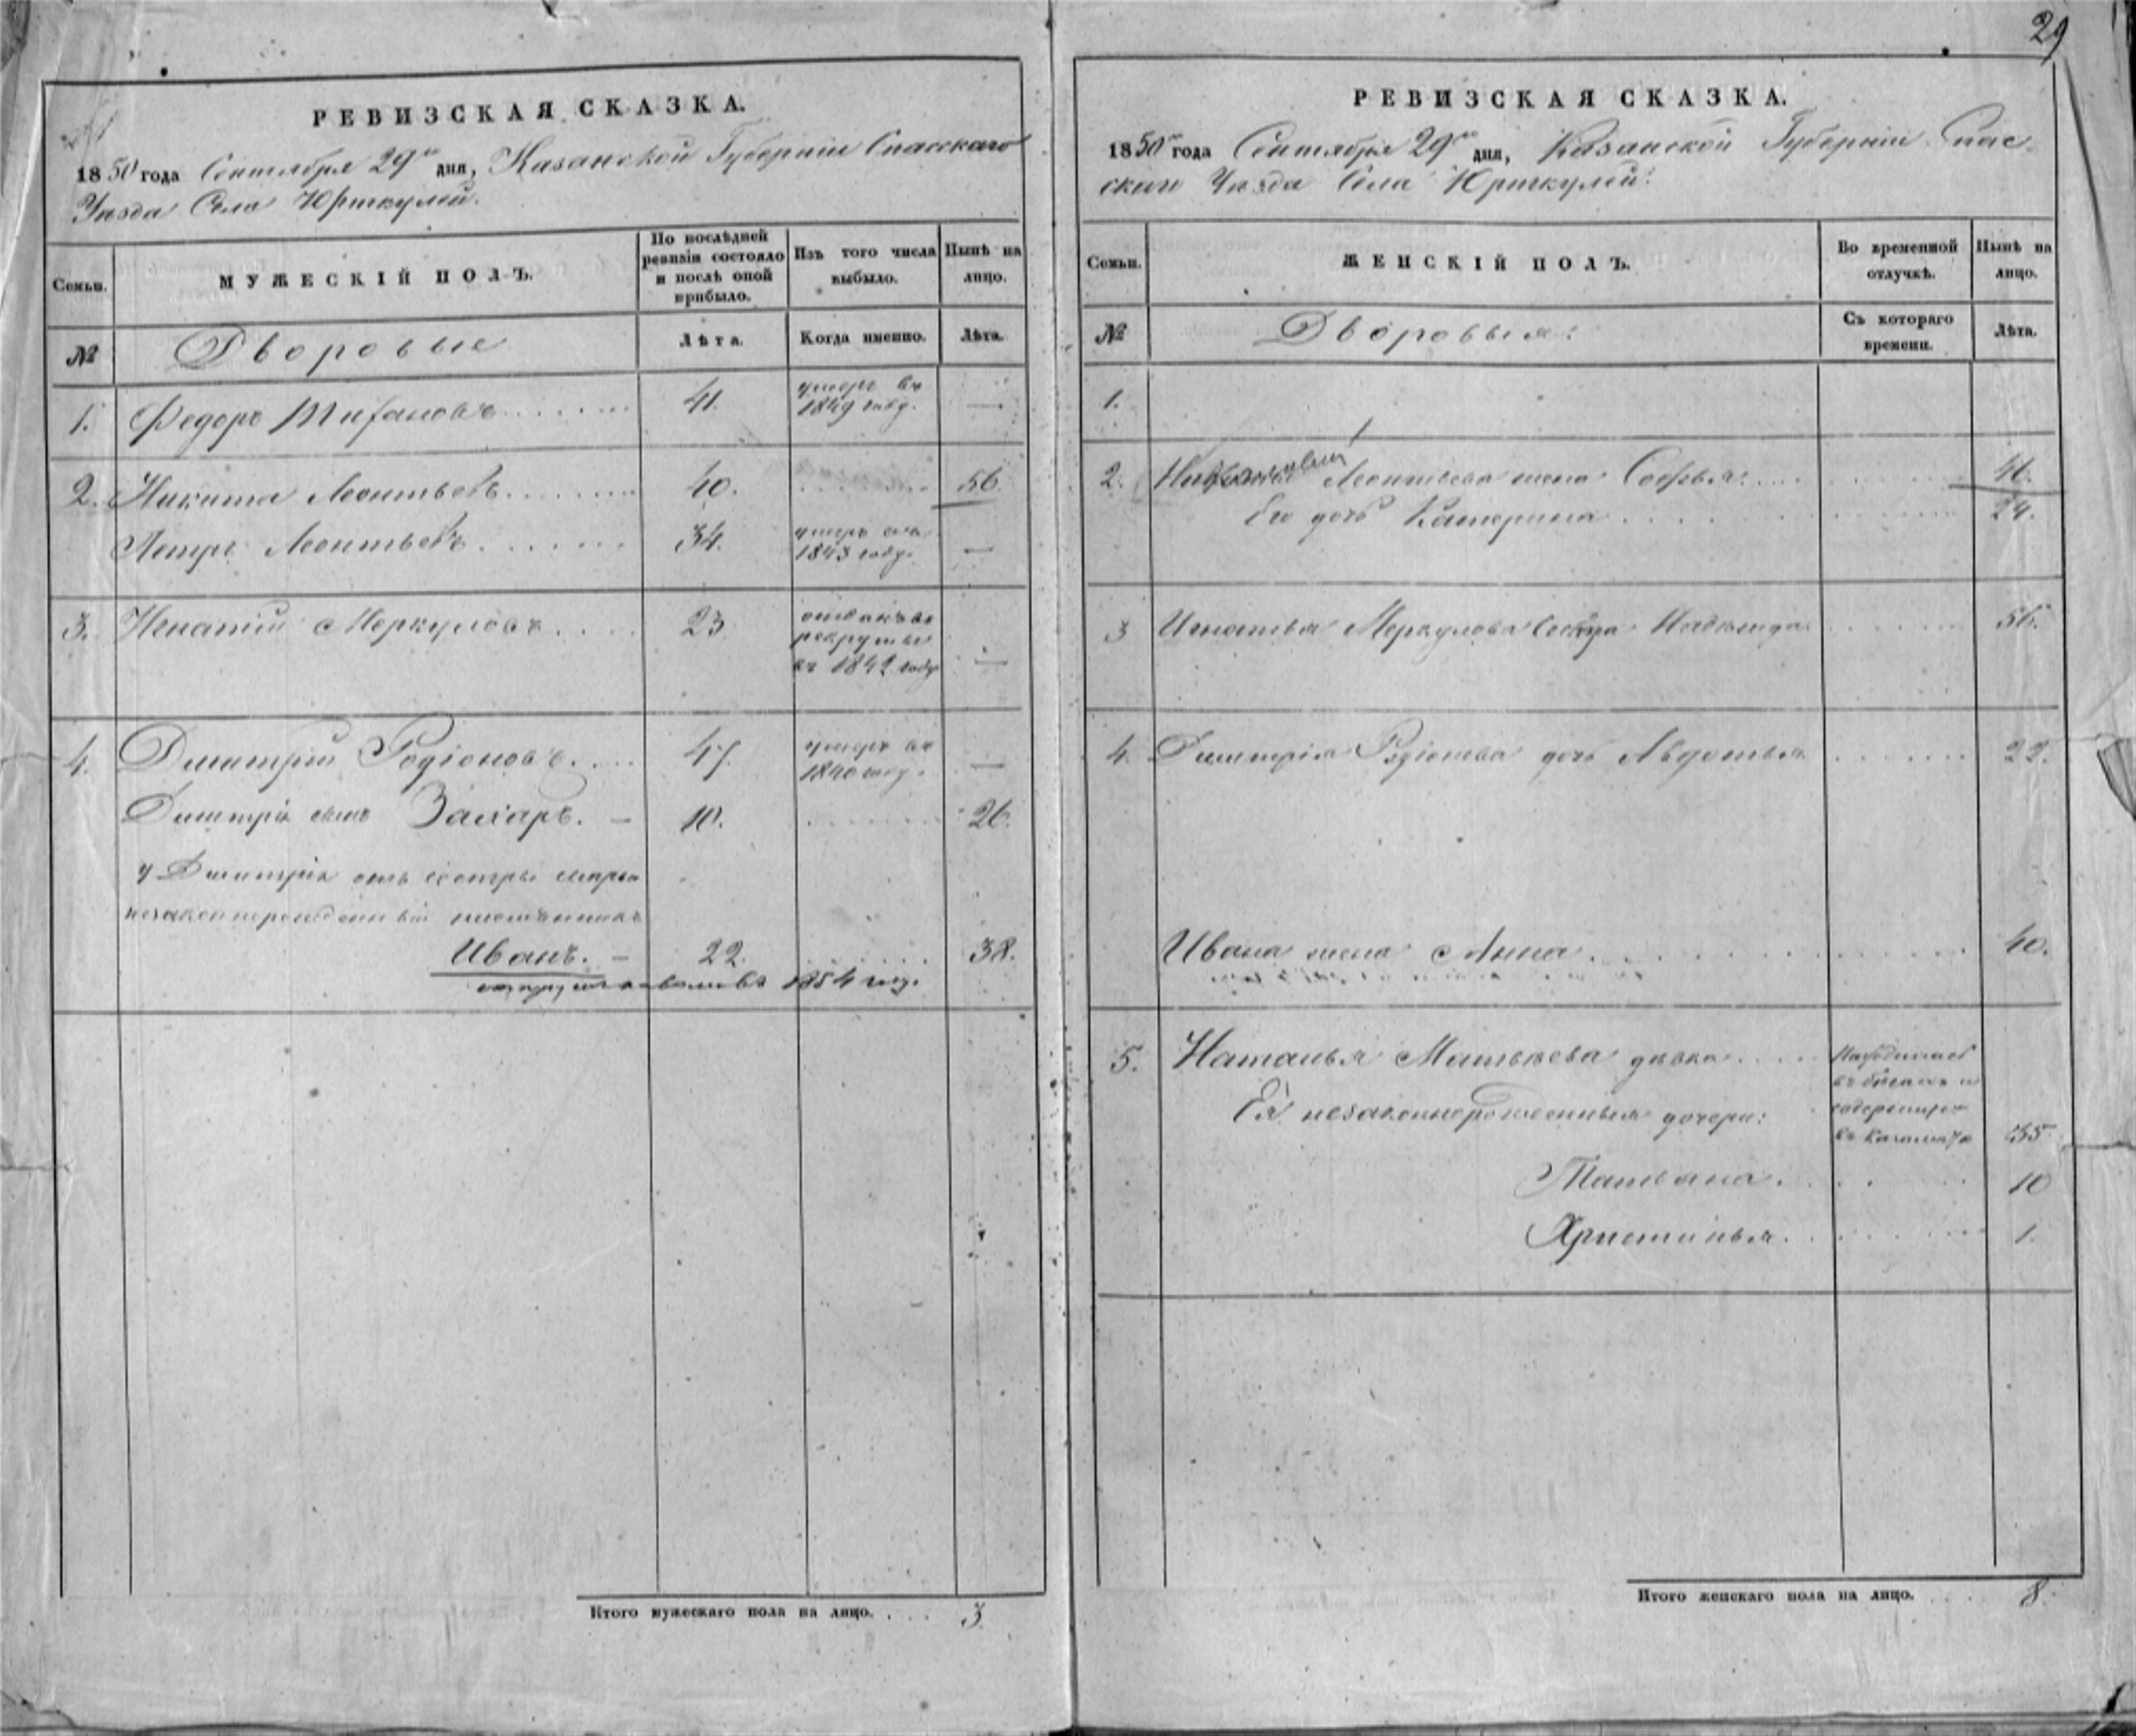 29
РЕВИЗСКАЯ СКАЗКА.
1850 года Сентября 29го дня, Казанской Губерніи Спасскаго
Уѣзда Села Юрткулей.
Семьи.
МУЖЕСКІЙ ПОЛЪ.
По послѣдней
ревизіи состояло
и послѣ оной
прибыло.
Изъ того числа
выбыло.
Нынѣ на
лицо.
№
Дворовые
Лѣта.
Когда именно.
Лѣта.
1. Федоръ 41. умеръ въ
1849 году. —
2. Никита Леонтьевъ 40. 56.
Петръ Леонтьевъ 34. умеръ
1843 году. —
3. Игнатій Меркуловъ 23 отданъ въ
рекруты
въ 1842 году —
4. Дмитрій Родіоновъ. 47. умеръ въ
1840 году. —
Дмитрія сынъ Захаръ. — 10. 26.
у Дмитрія отъ сестры
незаконнорожденный племянникъ
Иванъ. — 22. 38.
1854 году.
Итого мужескаго пола на лицо. . . . 3.
РЕВИЗСКАЯ СКАЗКА.
1850 года Сентября 29го дня, Казанской Губерніи Спас-
скаго Уѣзда Села Юрткулей.
Семьи.
ЖЕНСКІЙ ПОЛЪ.
Во временной
отлучкѣ.
Нынѣ на
лицо.
№
Дворовыя:
Съ котораго
времени.
Лѣта.
1.
2. Леонтьева жена Софья 46.
Его дочь Катерина 24.
3 Игнатья Меркулова сестра Надежда 56.
4. Дмитрія Родіонова дочь Авдотья 22.
Ивана жена Анна 40.
5. Наталья Матвѣева дѣвка Находится
въ бѣгахъ и
содержится
въ 35
Ея незаконнорожденныя дочери:
Татьяна. 10
Христинья. 1.
Итого женскаго пола на лицо. . . . 8.